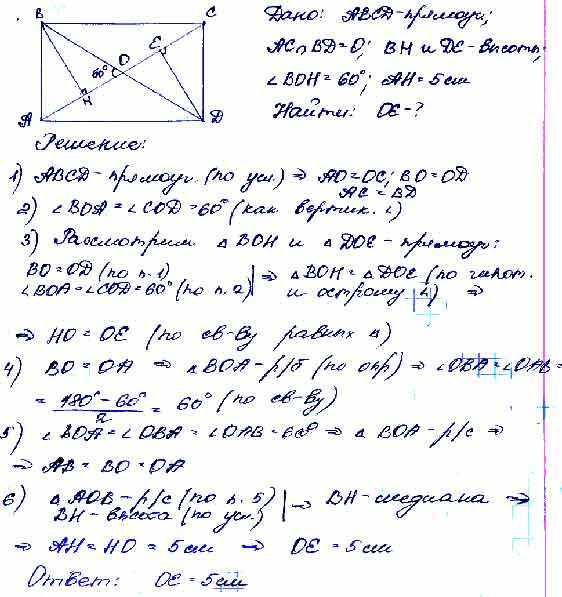 B C
E
O
60°
H
A D
Дано: ABCD-прямоуг;
AC∩BD=O; BH и DE-высоты;
∠BOH=60°; AH=5см
Найти: OE-?
Решение:
1) ABCD-прямоуг. (по усл.) ⇒ AO=OC; BO=OD
AC=BD
2) ∠BOA=∠COD=60° (как вертик. ∠)
3) Рассмотрим △BOH и △DOE-прямоуг:
BO=OD (по п.1)
∠BOA=∠COD=60° (по п.2) | ⇒ △BOH=△DOE (по гипот.
и острому ∠) ⇒
⇒ HO=OE (по св-ву равных △)
4) BO=OA ⇒ △BOA-р/б (по опр) ⇒ ∠OBA=∠OAB=
= (180°-60°)/2 = 60° (по св-ву)
5) ∠BOA=∠OBA=∠OAB=60° ⇒ △BOA-р/с ⇒
⇒ AB=BO=OA
6) △AOB-р/с (по п.5)
BH-высота (по усл.) | ⇒ BH-медиана ⇒
⇒ AH=HO=5см ⇒ OE=5см
Ответ: OE=5см